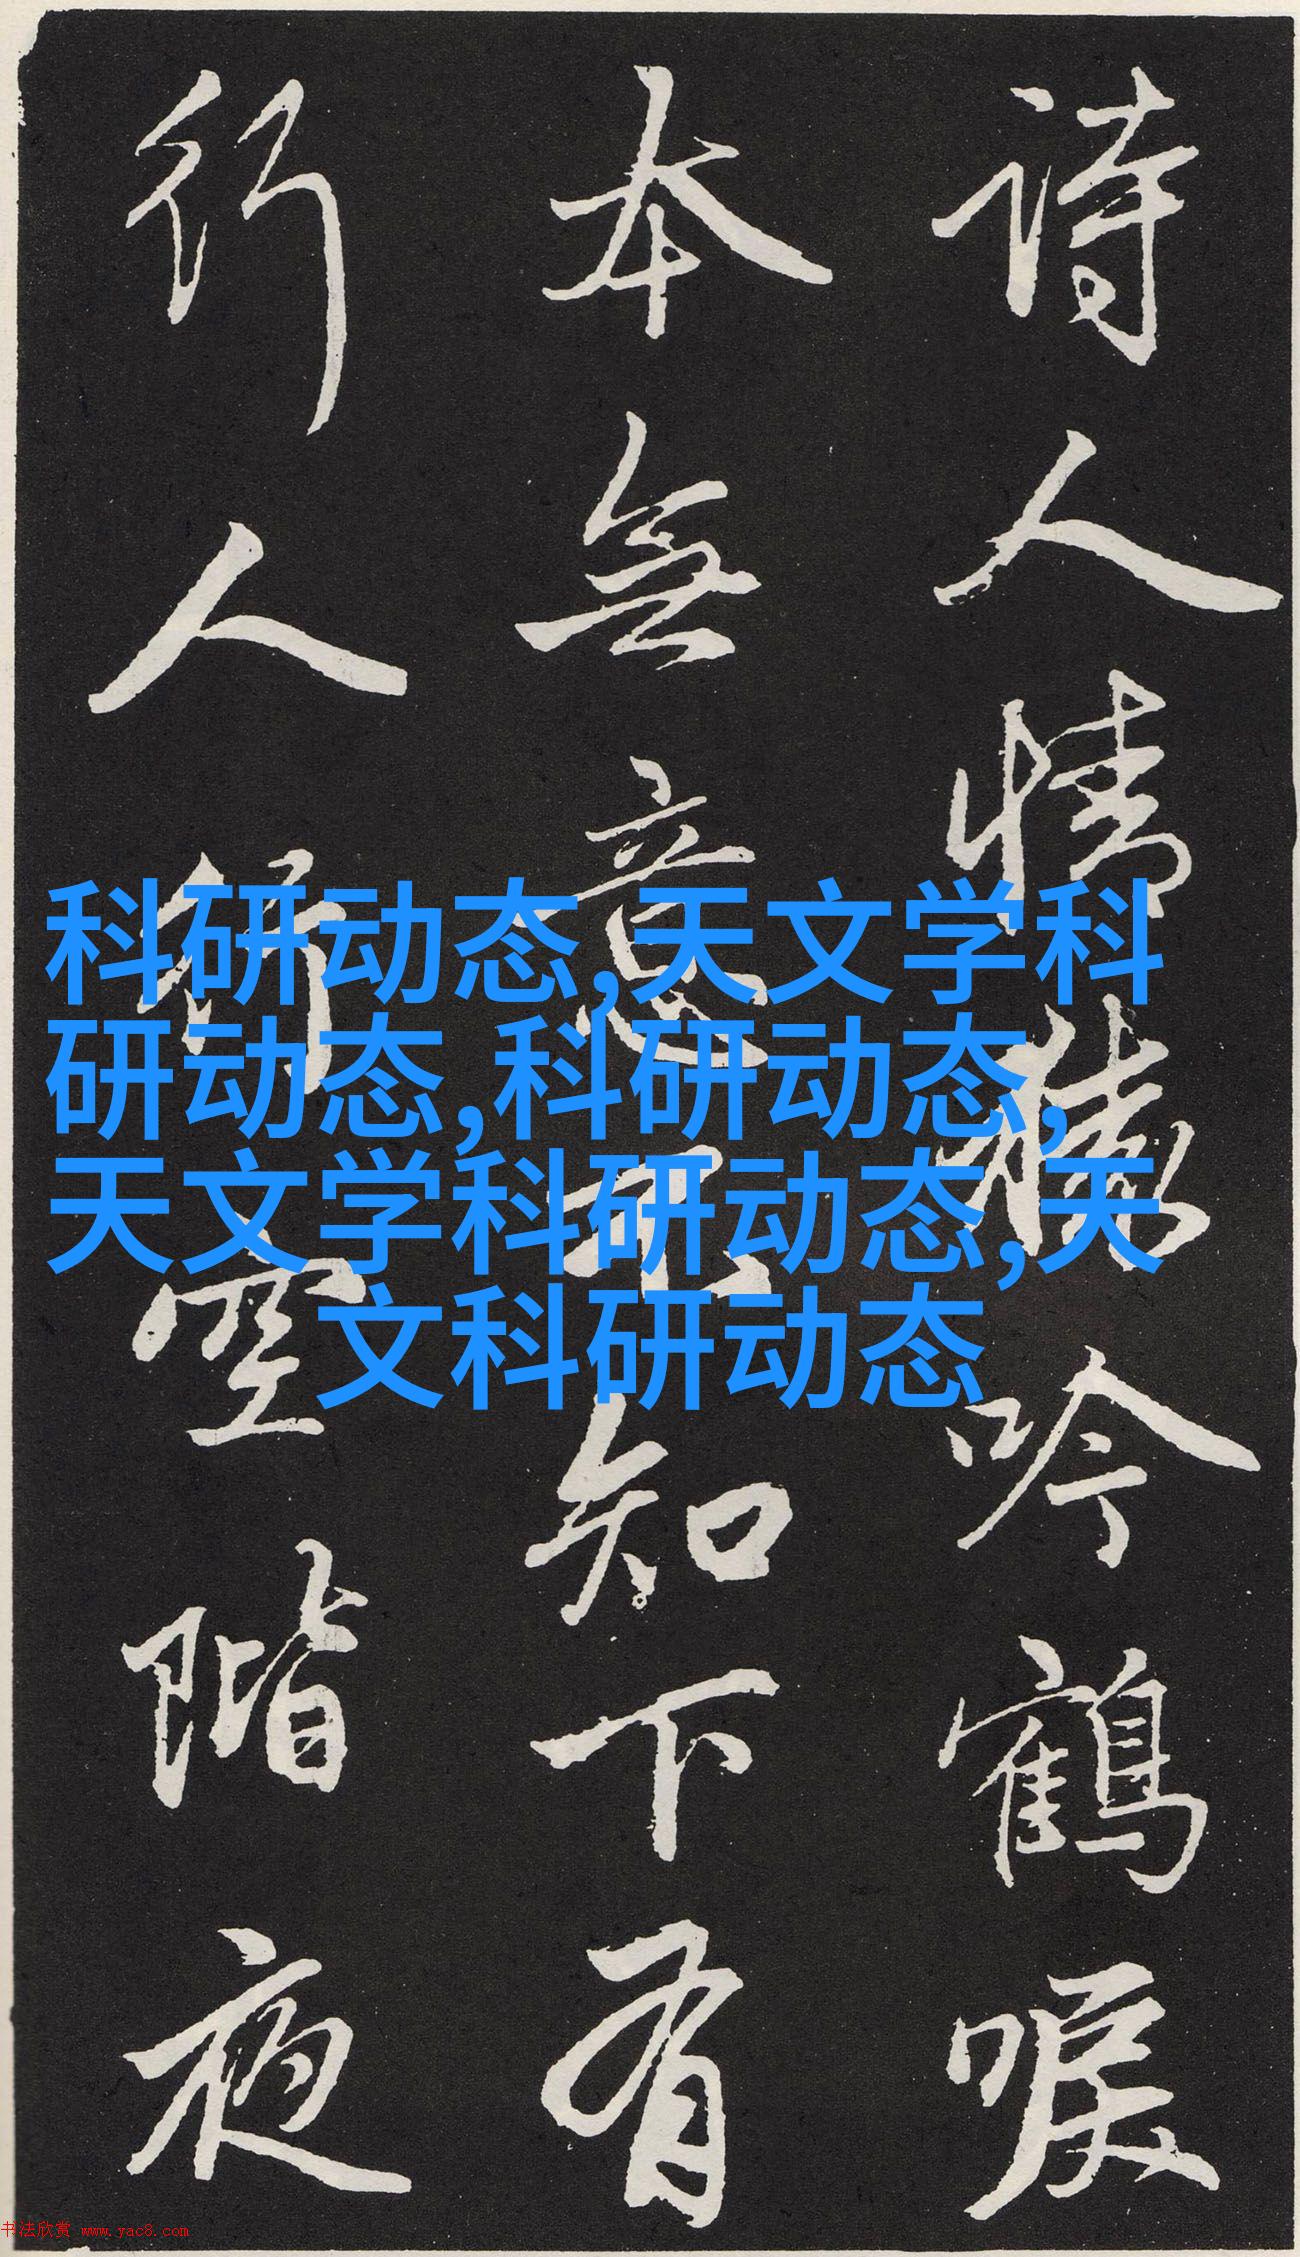 诗人情猿吟鶴唳
本無意不知下有
行人行空階夜
科研动态,天文学科
研动态,科研动态,
天文学科研动态,天
文科研动态
书法欣赏 www.yac8.com